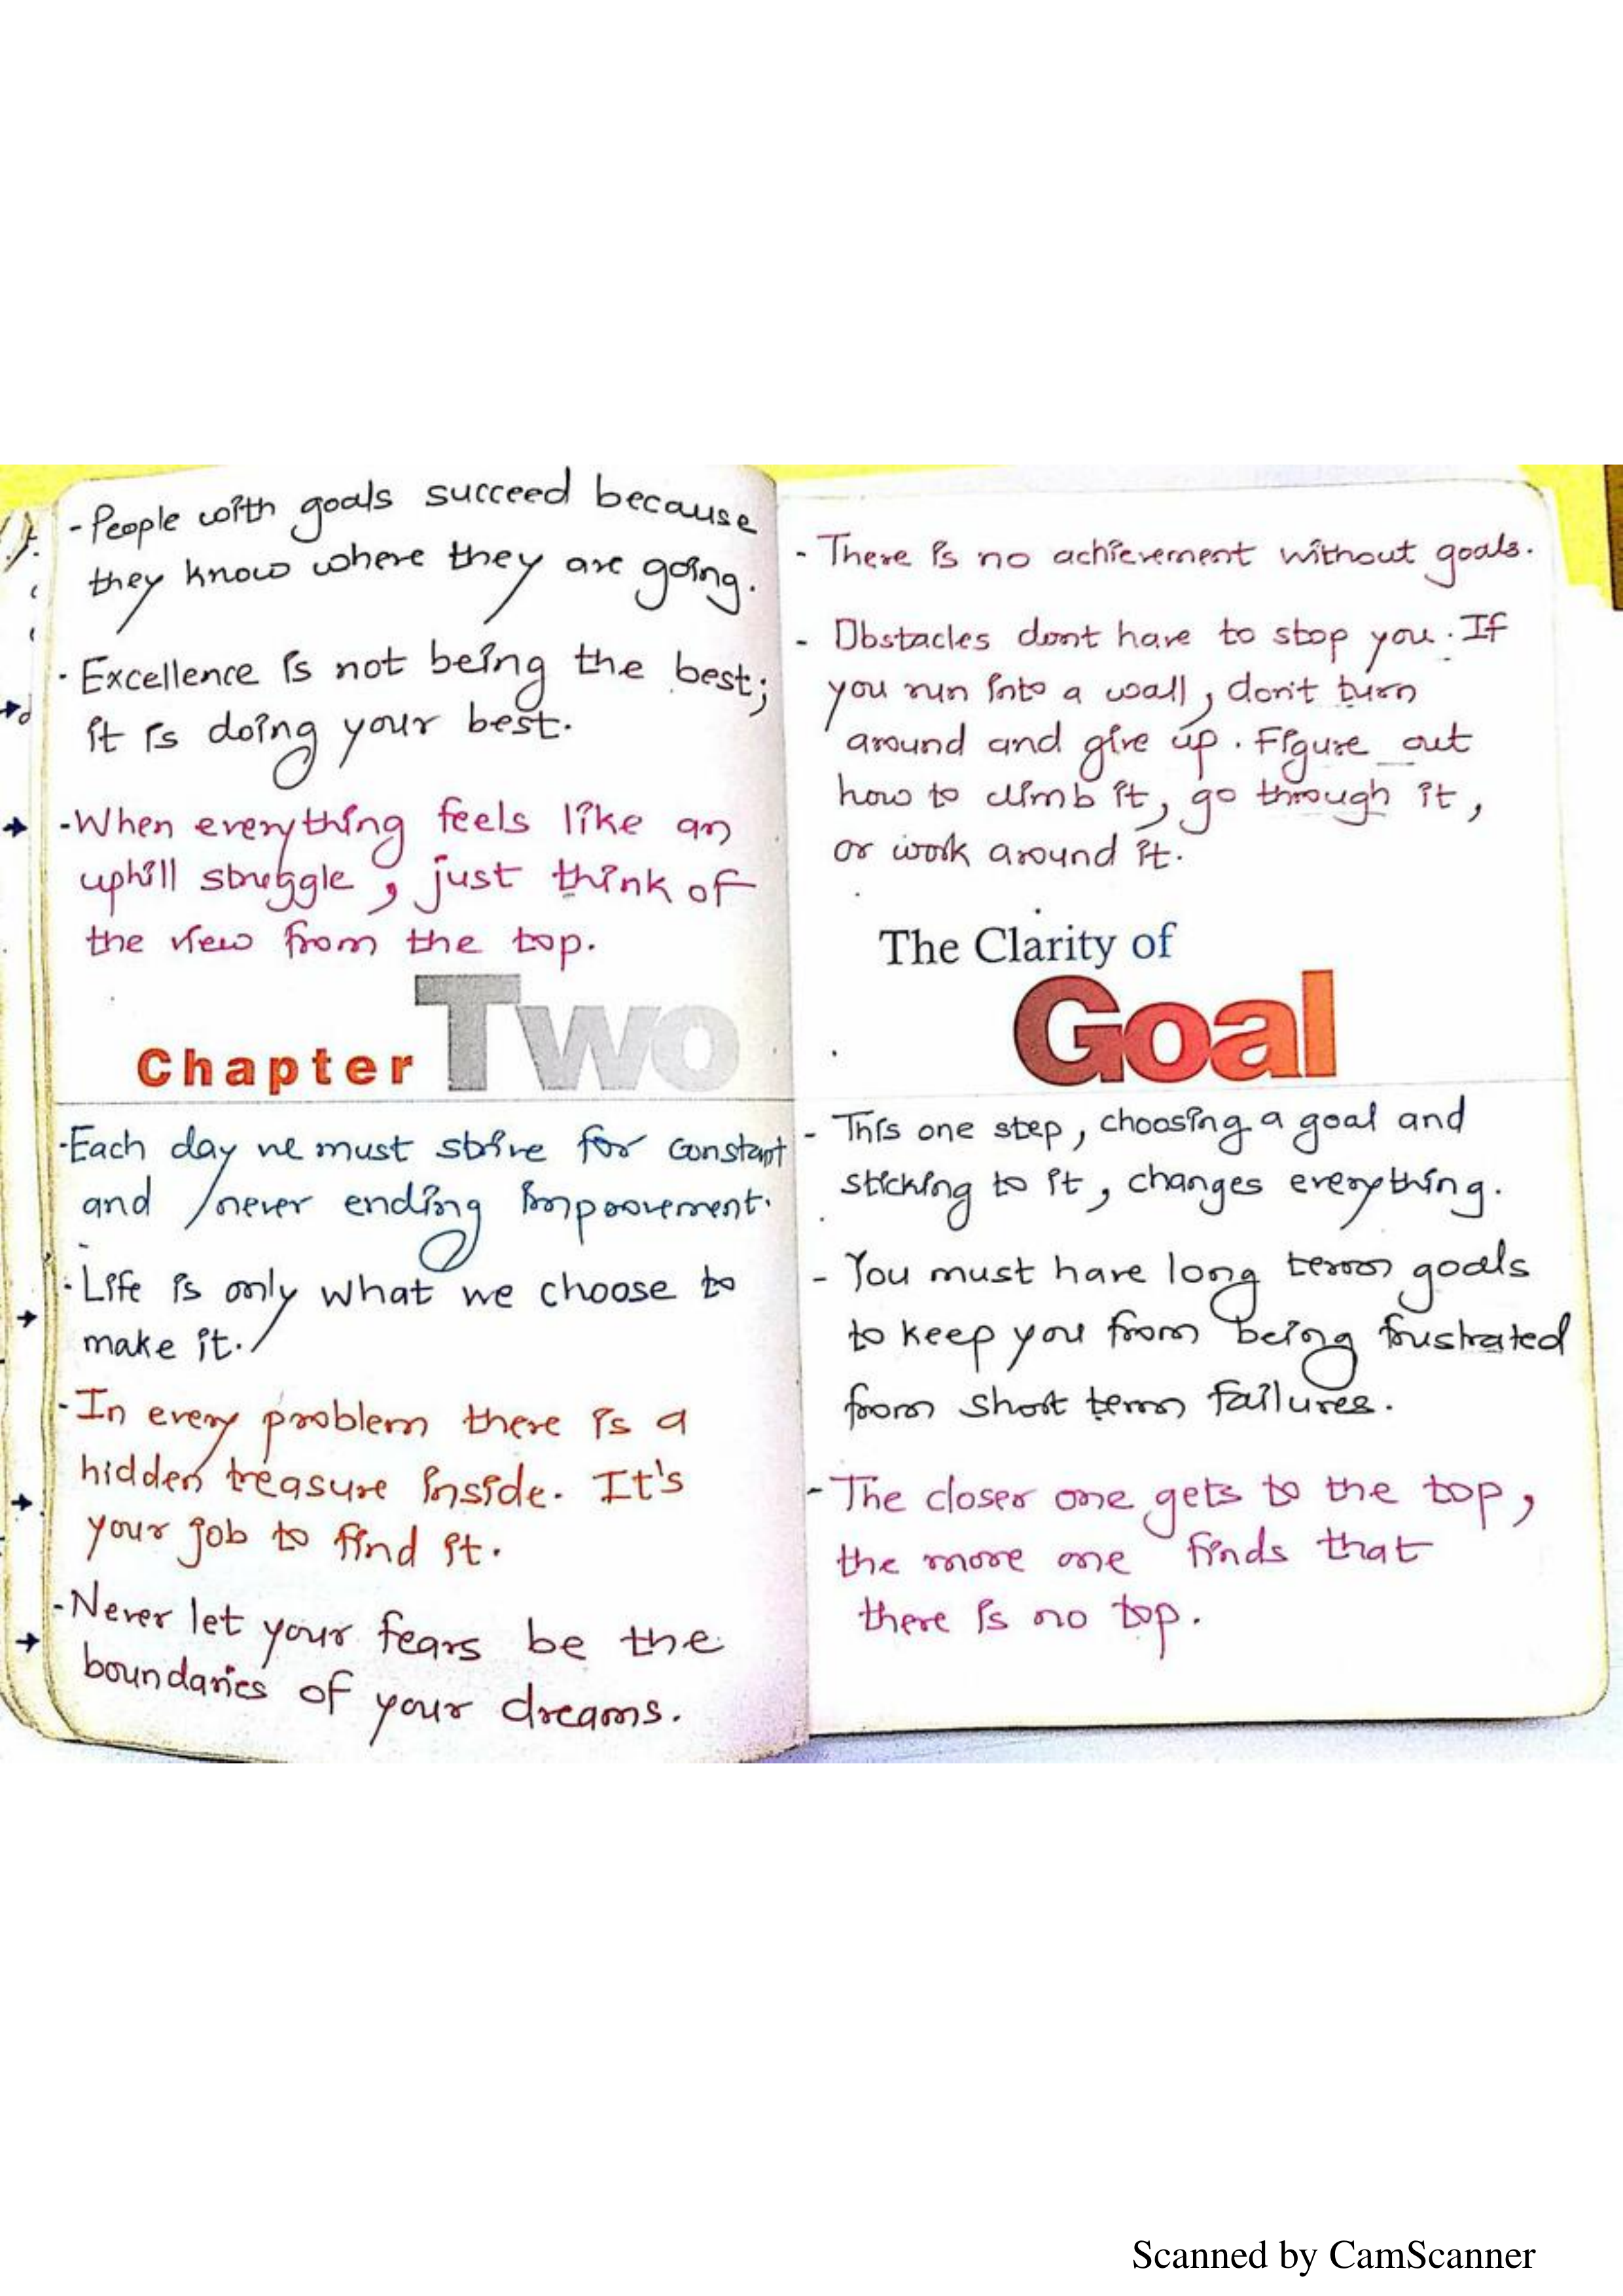 - People with goals succeed because
they know where they are going.
- Excellence is not being the best;
it is doing your best.
- When everything feels like an
uphill struggle, just think of
the view from the top.
Chapter Two
- Each day we must strive for constant
and never ending improvement.
- Life is only what we choose to
make it.
- In every problem there is a
hidden treasure inside. It's
your job to find it.
- Never let your fears be the
boundaries of your dreams.
- There is no achievement without goals.
- Obstacles dont have to stop you. If
you run into a wall, don't turn
around and give up. Figure out
how to climb it, go through it,
or work around it.
The Clarity of
Goal
- This one step, choosing a goal and
sticking to it, changes everything.
- You must have long term goals
to keep you from being frustrated
from short term failures.
- The closer one gets to the top,
the more one finds that
there is no top.
Scanned by CamScanner